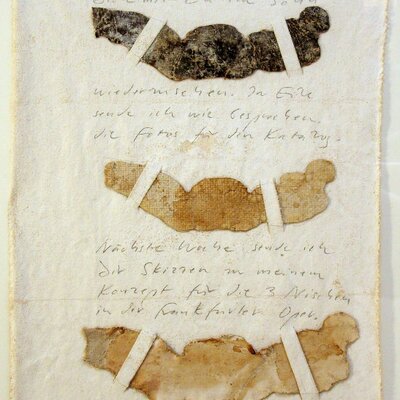 wiedermischen. In Eile
sende ich wie besprochen
die Fotos für den Katalog.
Nächste Woche sende ich
Dir Skizzen zu meinem
Konzept für die 3 Nischen
in der Frankfurter Oper.